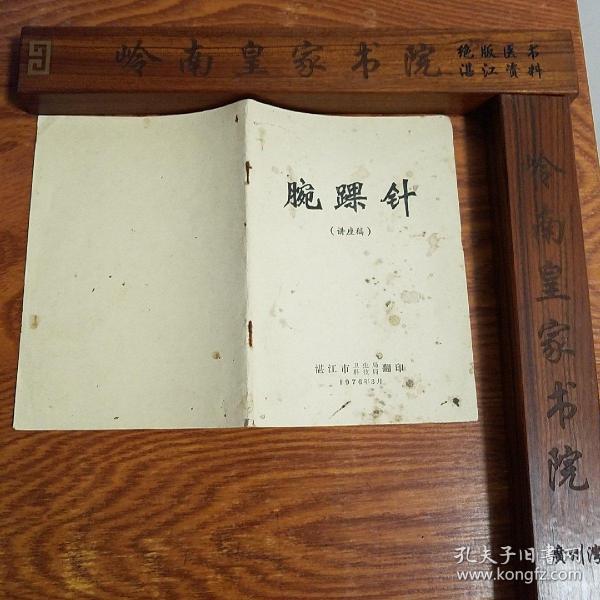 岭南皇家书院
绝版医书
湛江资料
腕踝针
(讲座稿)
湛江市卫生局科技局翻印
1976年3月
岭南皇家书院
孔夫子旧书网
www.kongfz.com